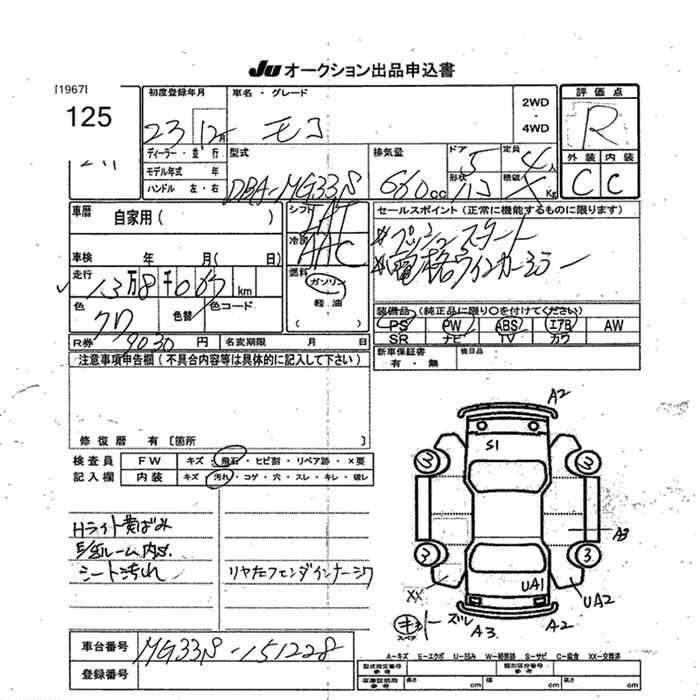 JU オークション出品申込書
[1967]
125
初度登録年月
23 12月
車名・グレード
モコ
2WD
・
4WD
評価点
R
ディーラー・並行
モデル年式 年
ハンドル 左・右
型式
DBA-MG33S
排気量
660cc
ドア
5
定員
4人
形状
積載
Kg
外装 内装
C C
車歴
自家用( )
シフト
IAT
冷房
AAC
セールスポイント(正常に機能するものに限ります)
※プッシュスタート
※電格ウインカーミラー
車検 年 月( 日)
走行
13万8千067km
燃料
ガソリン
軽油
( )
色
クロ
色替
色コード
装備品(純正品に限り○を付けてください)
PS PW ABS エアB AW
SR ナビ TV カワ
R券 9030円
名変期限 月 日
新車保証書
有・無
後日品
注意事項申告欄(不具合内容等は具体的に記入して下さい)
修復暦 有〔箇所 〕
検査員
記入欄
FW キズ・飛石・ヒビ割・リペア跡・×要
内装 キズ・汚れ・コゲ・穴・スレ・キレ・破レ
Hライト黄ばみ
シート汚れ
A2
S1
3
3
A3
3
3
XX
UA1
UA2
スペア
ズレ
A3
A2
車台番号
MG33S-151228
登録番号
A-キズ E-エクボ U-凹み W-補修跡 S-サビ C-腐食 XX-交換済
型式指定番号
参考
類別区分番号
参考
車庫証明用
参考
長さ cm
幅 cm
高さ cm